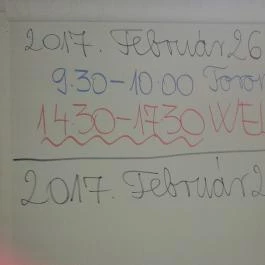 2017. Február 26
9.30-10.00 Toron
14.30-17.30 WEL
2017. Február 2